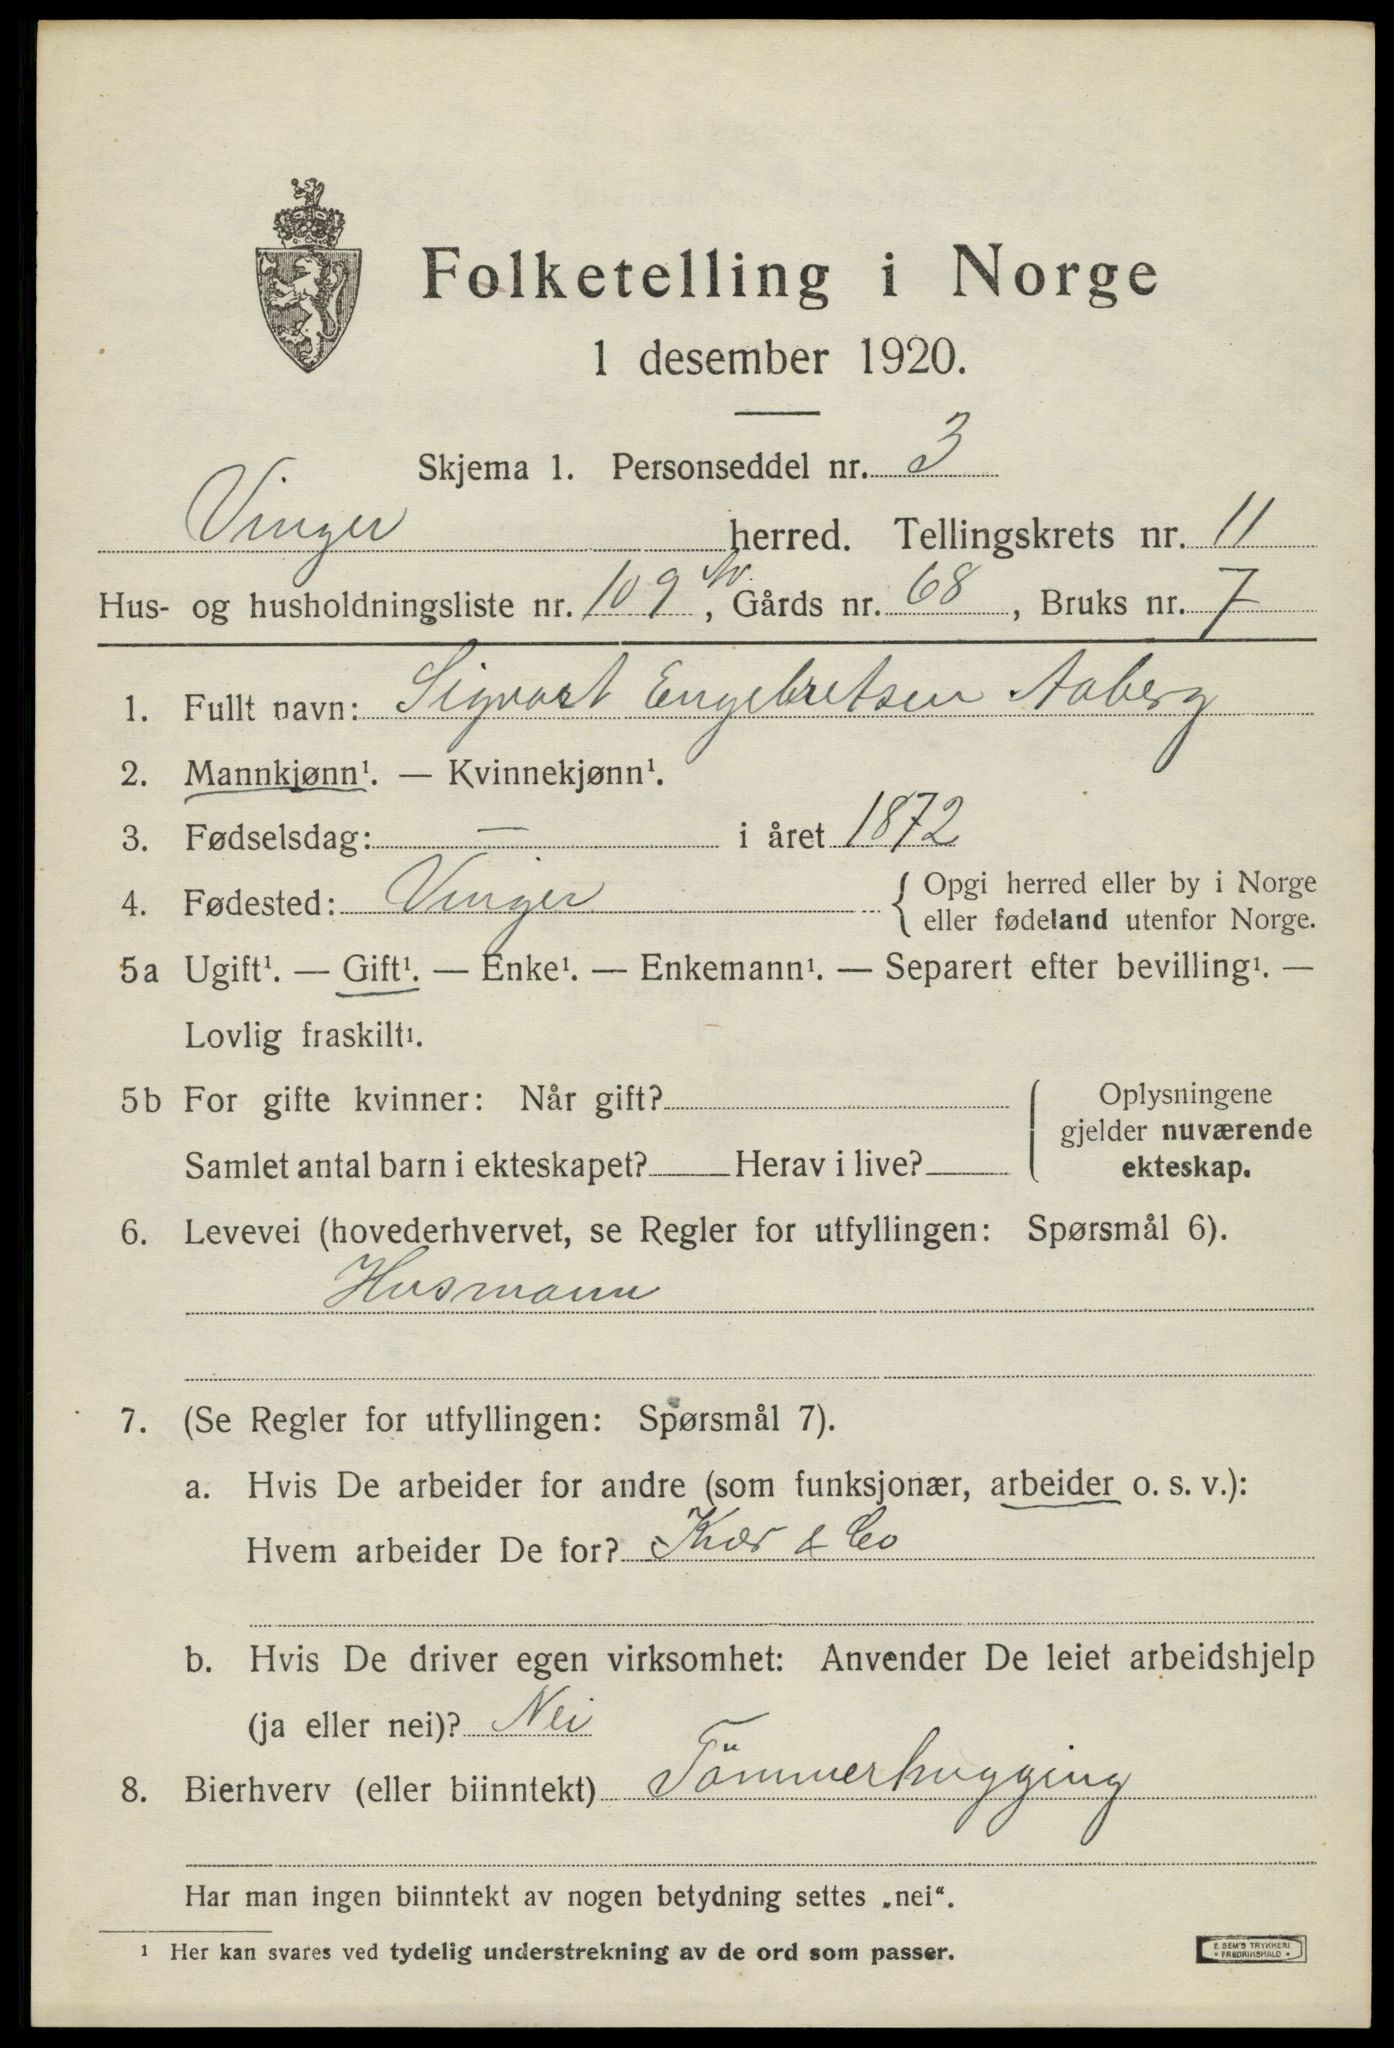 Folketelling i Norge
1 desember 1920.
Skjema 1. Personseddel nr. 3
Vinger herred. Tellingskrets nr. 11
Hus- og husholdningsliste nr. 109, Gårds nr. 68, Bruks nr. 7
1. Fullt navn: Sigvart Engebretsen Aaberg
2. Mannkjønn¹. — Kvinnekjønn¹.
3. Fødselsdag: — i året 1872
4. Fødested: Vinger { Opgi herred eller by i Norge
eller fødeland utenfor Norge.
5a Ugift¹. — Gift¹. — Enke¹. — Enkemann¹. — Separert efter bevilling¹. —
Lovlig fraskilt¹.
5b For gifte kvinner: Når gift? Oplysningene
gjelder nuværende
Samlet antal barn i ekteskapet? Herav i live? ekteskap.
6. Levevei (hovederhvervet, se Regler for utfyllingen: Spørsmål 6).
Husmann
7. (Se Regler for utfyllingen: Spørsmål 7).
a. Hvis De arbeider for andre (som funksjonær, arbeider o. s. v.):
Hvem arbeider De for? Kiær & Co
b. Hvis De driver egen virksomhet: Anvender De leiet arbeidshjelp
(ja eller nei)? Nei
8. Bierhverv (eller biinntekt) Tömmerhugging
Har man ingen biinntekt av nogen betydning settes „nei“.
¹ Her kan svares ved tydelig understrekning av de ord som passer.
E. SEM'S TRYKKERI
• FREDRIKSHALD •